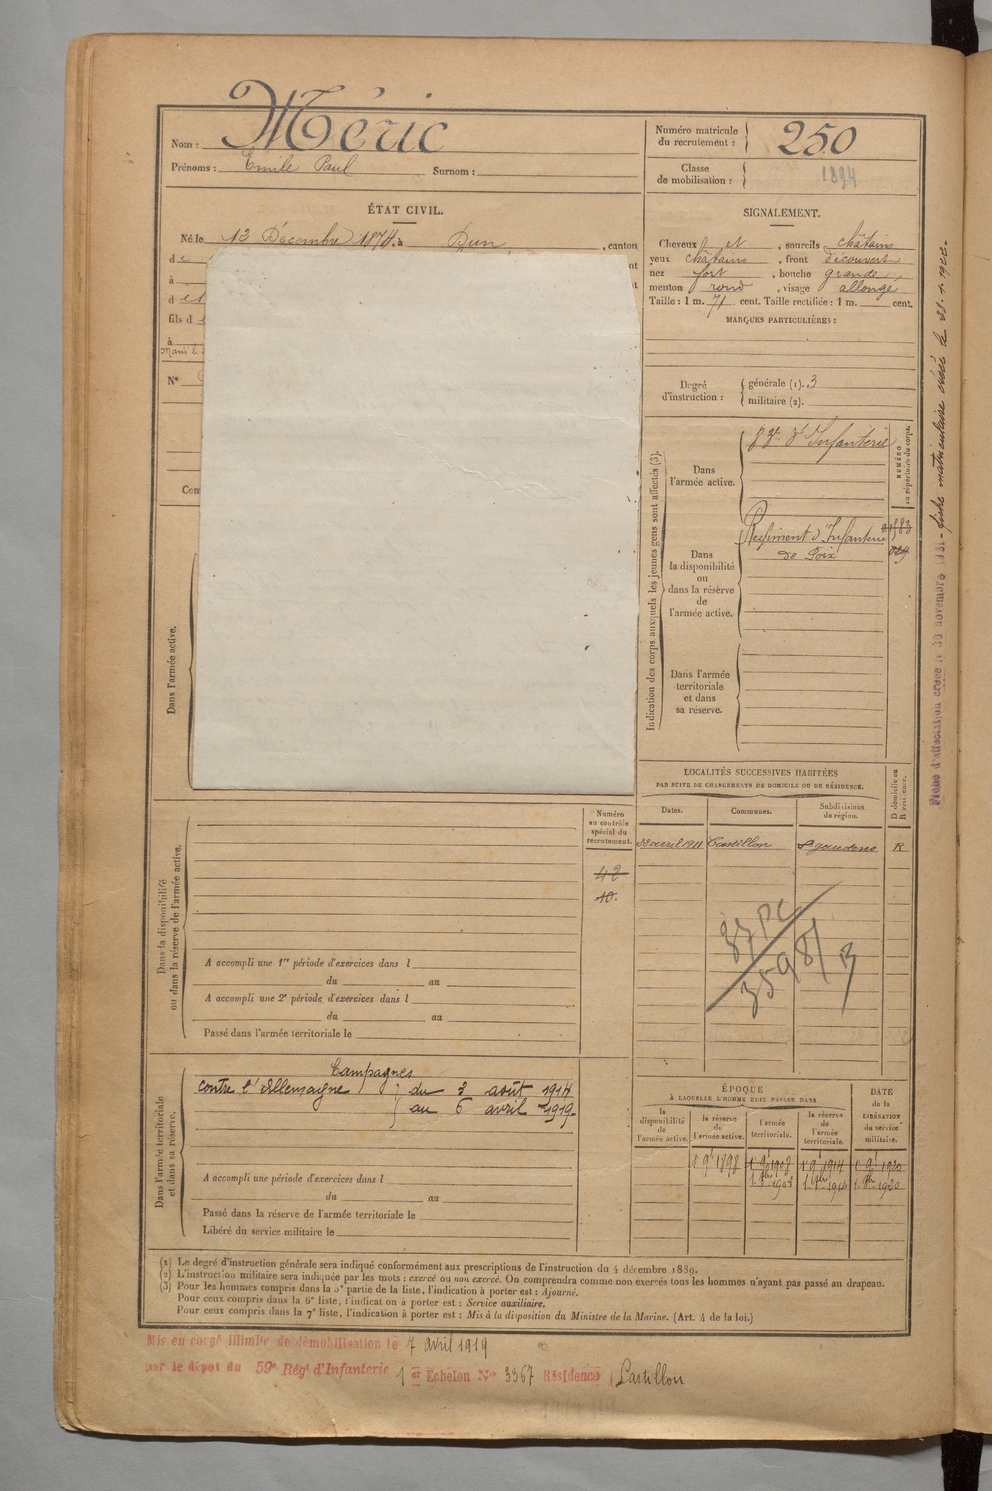 Nom : Méric
Prénoms : Emile Paul Surnom :
Numéro matricule du recrutement : 250
Classe de mobilisation : 1894
ÉTAT CIVIL.
Né le 13 Décembre 1874, à Dun, canton
d
à
d
fils d
à
N°
SIGNALEMENT.
Cheveux et, sourcils châtains
yeux châtains, front découvert
nez fort, bouche grande
menton rond, visage allongé
Taille : 1 m. 71 cent. Taille rectifiée : 1 m. cent.
MARQUES PARTICULIÈRES :
Degré d'instruction : générale (1). 3
militaire (2).
Indication des corps auxquels les jeunes gens sont affectés (3).
NUMÉRO au répertoire du corps.
Dans l'armée active.
d'Infanterie
Dans la disponibilité ou dans la réserve de l'armée active.
Régiment d'Infanterie
de Foix
Dans l'armée territoriale et dans sa réserve.
Dans l'armée active.
LOCALITÉS SUCCESSIVES HABITÉES
PAR SUITE DE CHANGEMENTS DE DOMICILE OU DE RÉSIDENCE.
D domicile ou R résidence.
Dates. Communes. Subdivisions de région.
23 avril 1911 Castillon St gaudens R
37 PC
3598/3
Dans la disponibilité ou dans la réserve de l'armée active.
Numéro au contrôle spécial du recrutement.
42
10.
A accompli une 1re période d'exercices dans l
du au
A accompli une 2e période d'exercices dans l
du au
Passé dans l'armée territoriale le
Dans l'armée territoriale et dans sa réserve.
Campagnes
contre l'Allemagne du 3 août 1914
au 6 avril 1919
A accompli une période d'exercices dans l
du au
Passé dans la réserve de l'armée territoriale le
Libéré du service militaire le
ÉPOQUE
À LAQUELLE L'HOMME DOIT PASSER DANS
la disponibilité de l'armée active. la réserve de l'armée active. l'armée territoriale. la réserve de l'armée territoriale.
DATE de la LIBÉRATION du service militaire.
(1) Le degré d'instruction générale sera indiqué conformément aux prescriptions de l'instruction du 4 décembre 1889.
(2) L'instruction militaire sera indiquée par les mots : exercé ou non exercé. On comprendra comme non exercés tous les hommes n'ayant pas passé au drapeau.
(3) Pour les hommes compris dans la 5e partie de la liste, l'indication à porter est : Ajourné.
Pour ceux compris dans la 6e liste, l'indication à porter est : Service auxiliaire.
Pour ceux compris dans la 7e liste, l'indication à porter est : Mis à la disposition du Ministre de la Marine. (Art. 4 de la loi.)
Mis en congé illimité de démobilisation le 7 avril 1919
par le dépôt du 59e Régt d'Infanterie 1er Echelon No 3367 Résidence Castillon
fiche matriculaire